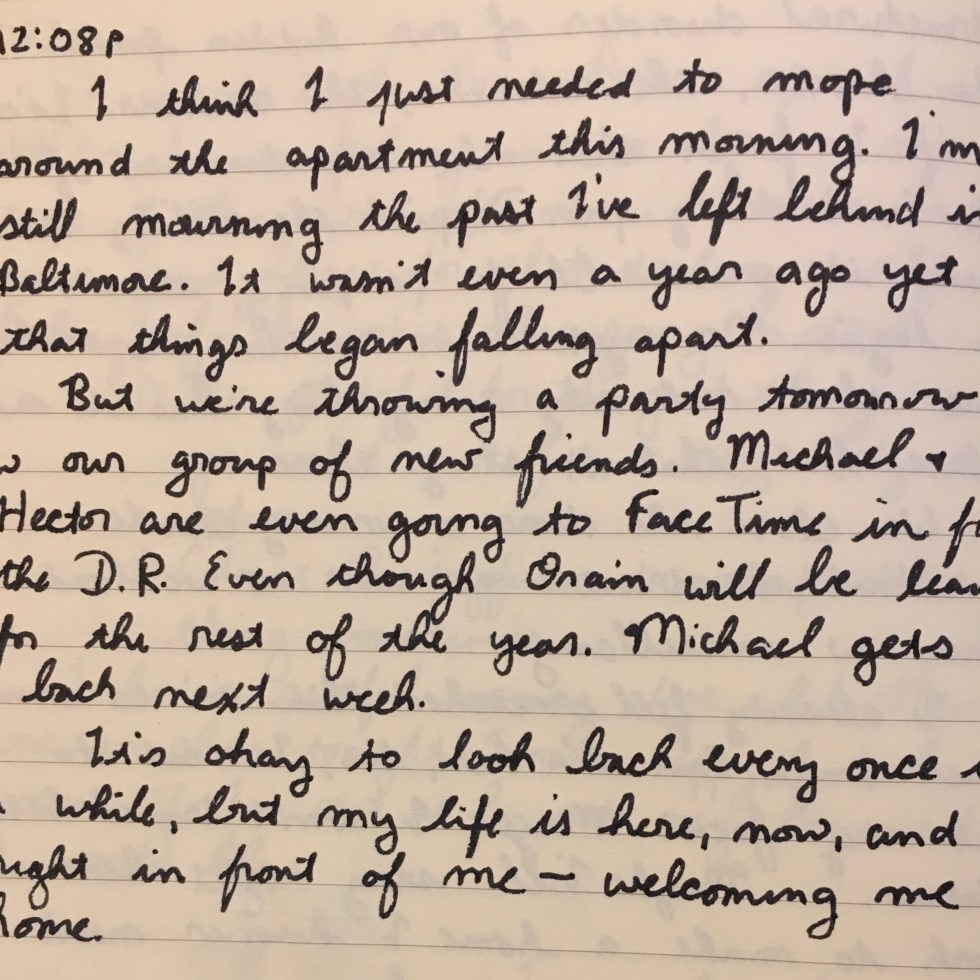 12:08p
I think I just needed to mope
around the apartment this morning. I'm
still mourning the past I've left behind i
Baltimore. It wasn't even a year ago yet
that things began falling apart.
But we're throwing a party tomorrow
w our group of new friends. Michael &
Hector are even going to FaceTime in f
the D.R. Even though Orain will be lea
for the rest of the year. Michael gets
back next week.
It's okay to look back every once i
while, but my life is here, now, and
right in front of me — welcoming me
home.